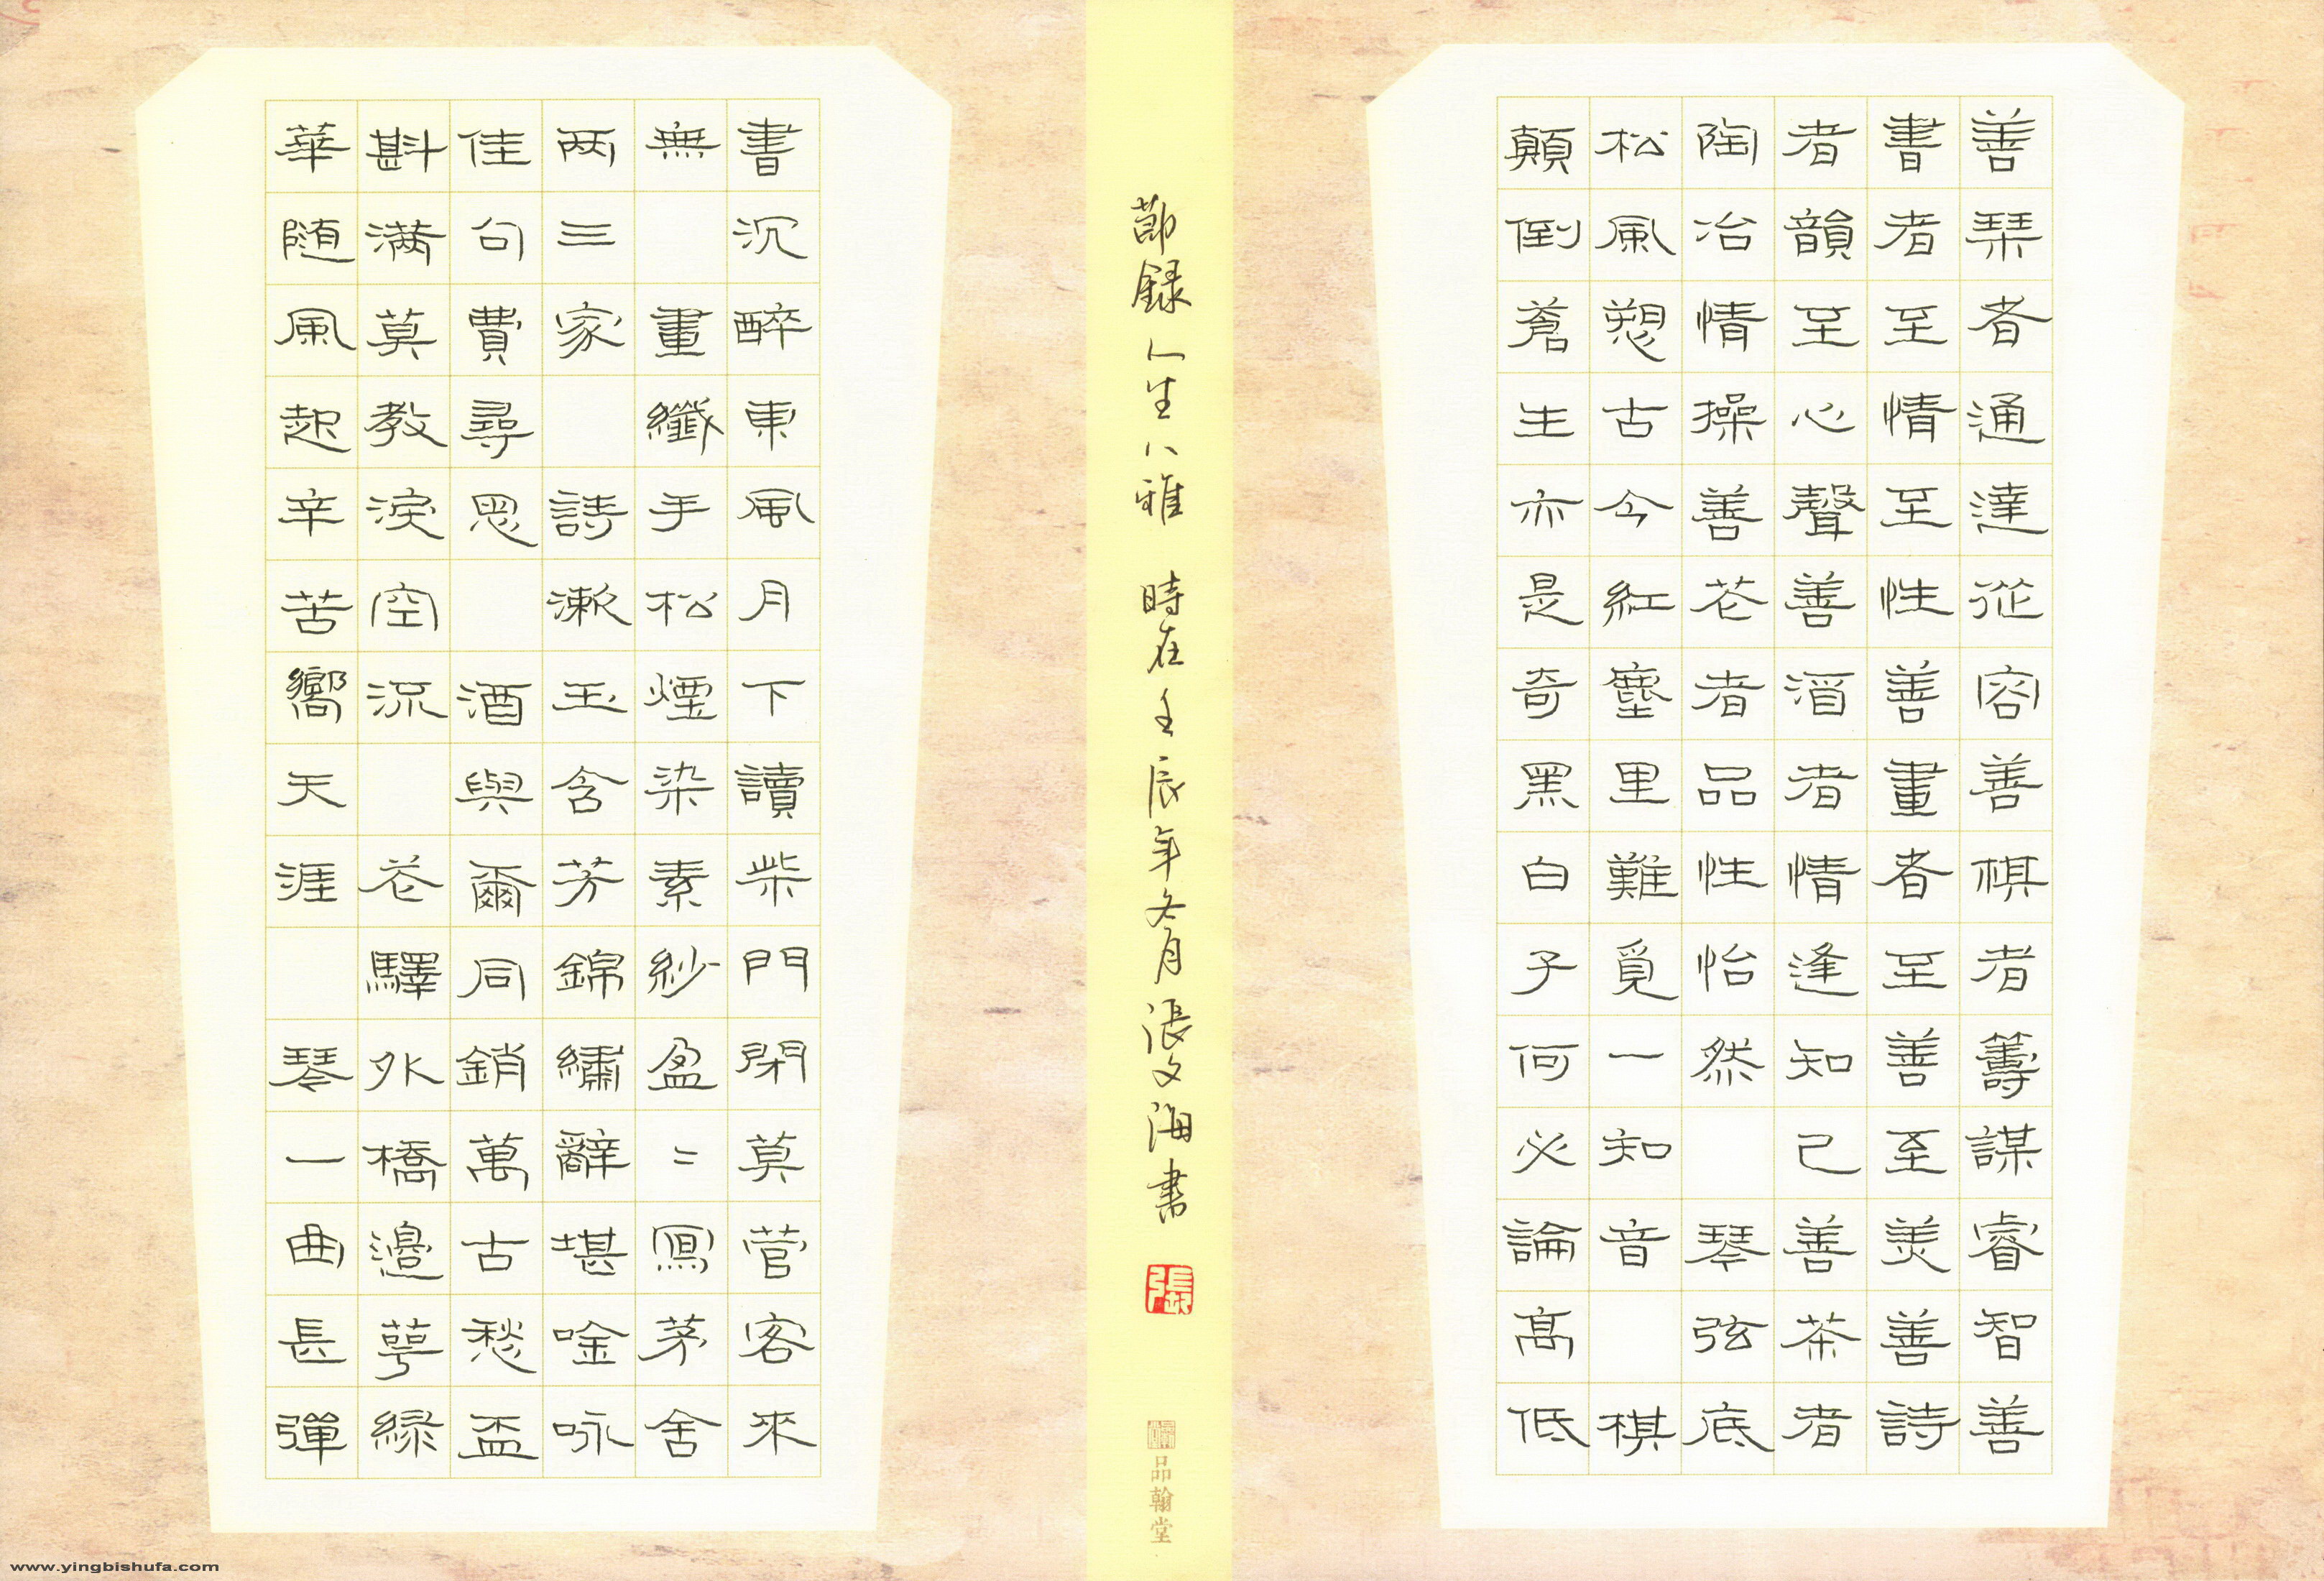 善琹者通達從容善棋者籌謀睿智善
書者至情至性善畫者至善至美善詩
者韻至心聲善酒者情逢知己善茶者
陶冶情操善花者品性怡然 琴弦底
松風愬古今紅塵里難覓一知音 棋
顛倒蒼生亦是奇黑白子何必論高低
書沉醉東風月下讀柴門閉莫管客來
無 畫纖手松煙染素紗盈〻寫茅舍
两三家 詩漱玉含芳錦繡辭堪唫咏
佳句費尋思 酒與爾同銷萬古愁盃
斟满莫教淚空流 花驛外橋邊萼緑
華随風起辛苦嚮天涯 琴一曲長彈
節録人生八雅 時在壬辰年冬月張文海書
張
品翰堂
www.yingbishufa.com